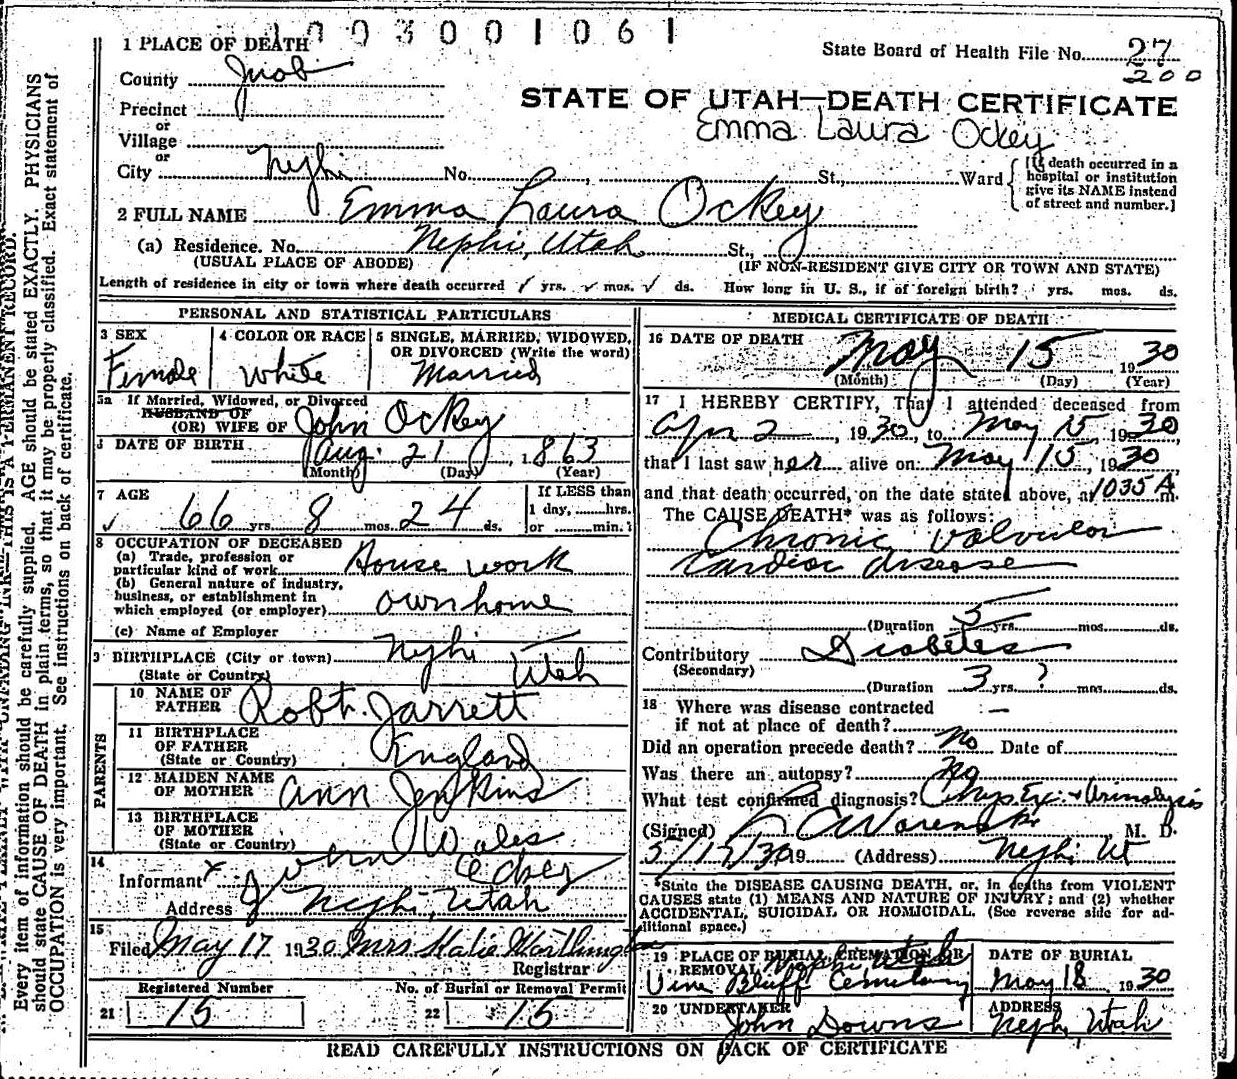 1003001061
1 PLACE OF DEATH
State Board of Health File No. 27
200
County Juab
STATE OF UTAH—DEATH CERTIFICATE
Precinct
or
Emma Laura Ockey
Village
or
City Nephi No. , St., Ward
[If death occurred in a hospital or institution give its NAME instead of street and number.]
2 FULL NAME Emma Laura Ockey
(a) Residence. No. Nephi, Utah St.,
(USUAL PLACE OF ABODE) (IF NON-RESIDENT GIVE CITY OR TOWN AND STATE)
Length of residence in city or town where death occurred yrs. mos. ds. How long in U. S., if of foreign birth? yrs. mos. ds.
PERSONAL AND STATISTICAL PARTICULARS
3 SEX Female
4 COLOR OR RACE White
5 SINGLE, MARRIED, WIDOWED, OR DIVORCED (Write the word) Married
5a If Married, Widowed, or Divorced
HUSBAND OF
(OR) WIFE OF John Ockey
DATE OF BIRTH Aug. 21, 1863
(Month) (Day) (Year)
7 AGE
66 yrs. 8 mos. 24 ds.
If LESS than
1 day, hrs.
or min.
8 OCCUPATION OF DECEASED
(a) Trade, profession or
particular kind of work House work
(b) General nature of industry,
business, or establishment in
which employed (or employer) own home
(c) Name of Employer
9 BIRTHPLACE (City or town) Nephi
(State or Country) Utah
PARENTS
10 NAME OF FATHER Robt. Jarrett
11 BIRTHPLACE OF FATHER (State or Country) England
12 MAIDEN NAME OF MOTHER Ann Jenkins
13 BIRTHPLACE OF MOTHER (State or Country) Wales
14
Informant x John Ockey
Address Nephi, Utah
15
Filed May 17 1930 Mrs Katie Worthington
Registrar
Registered Number
21 15
No. of Burial or Removal Permit
22 15
MEDICAL CERTIFICATE OF DEATH
16 DATE OF DEATH May 15 1930
(Month) (Day) (Year)
17 I HEREBY CERTIFY, That I attended deceased from
Apr 2, 1930, to May 15, 1930,
that I last saw her alive on May 15, 1930
and that death occurred, on the date stated above, at 1035 A m.
The CAUSE DEATH* was as follows:
Chronic Valvular
Cardiac disease
(Duration 5 yrs. mos. ds.
Contributory Diabetes
(Secondary)
(Duration 3 yrs. ? mos. ds.
18 Where was disease contracted
if not at place of death? —
Did an operation precede death? No Date of
Was there an autopsy? No
What test confirmed diagnosis? Phys Ex. + Urinalysis
(Signed) M. D.
19 (Address) Nephi Ut
*State the DISEASE CAUSING DEATH, or, in deaths from VIOLENT
CAUSES state (1) MEANS AND NATURE OF INJURY; and (2) whether
ACCIDENTAL, SUICIDAL OR HOMICIDAL. (See reverse side for ad-
ditional space.)
19 PLACE OF BURIAL, CREMATION OR REMOVAL Nephi Utah
Vine Bluff Cemetary
DATE OF BURIAL
May 18 1930
20 UNDERTAKER
John Downs
ADDRESS
Nephi, Utah
READ CAREFULLY INSTRUCTIONS ON BACK OF CERTIFICATE
Every item of information should be carefully supplied. AGE should be stated EXACTLY. PHYSICIANS
should state CAUSE OF DEATH in plain terms, so that it may be properly classified. Exact statement of
OCCUPATION is very important. See instructions on back of certificate.